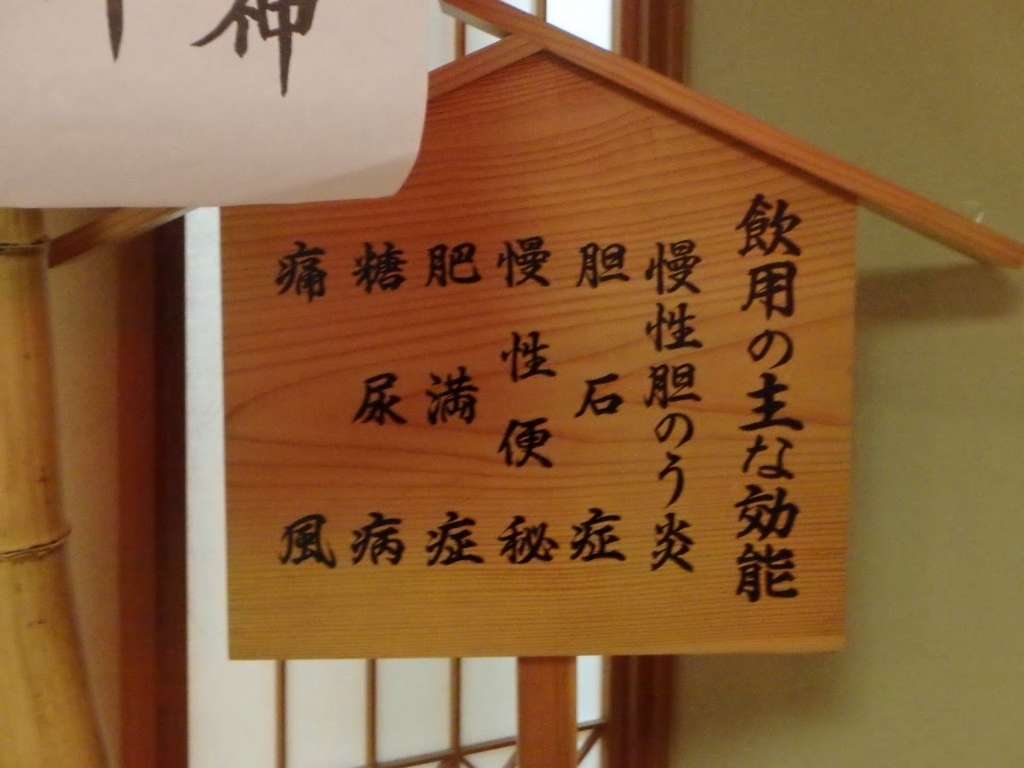 神
飲用の主な効能
慢性胆のう炎
胆石症
慢性便秘
肥満症
糖尿病
痛風